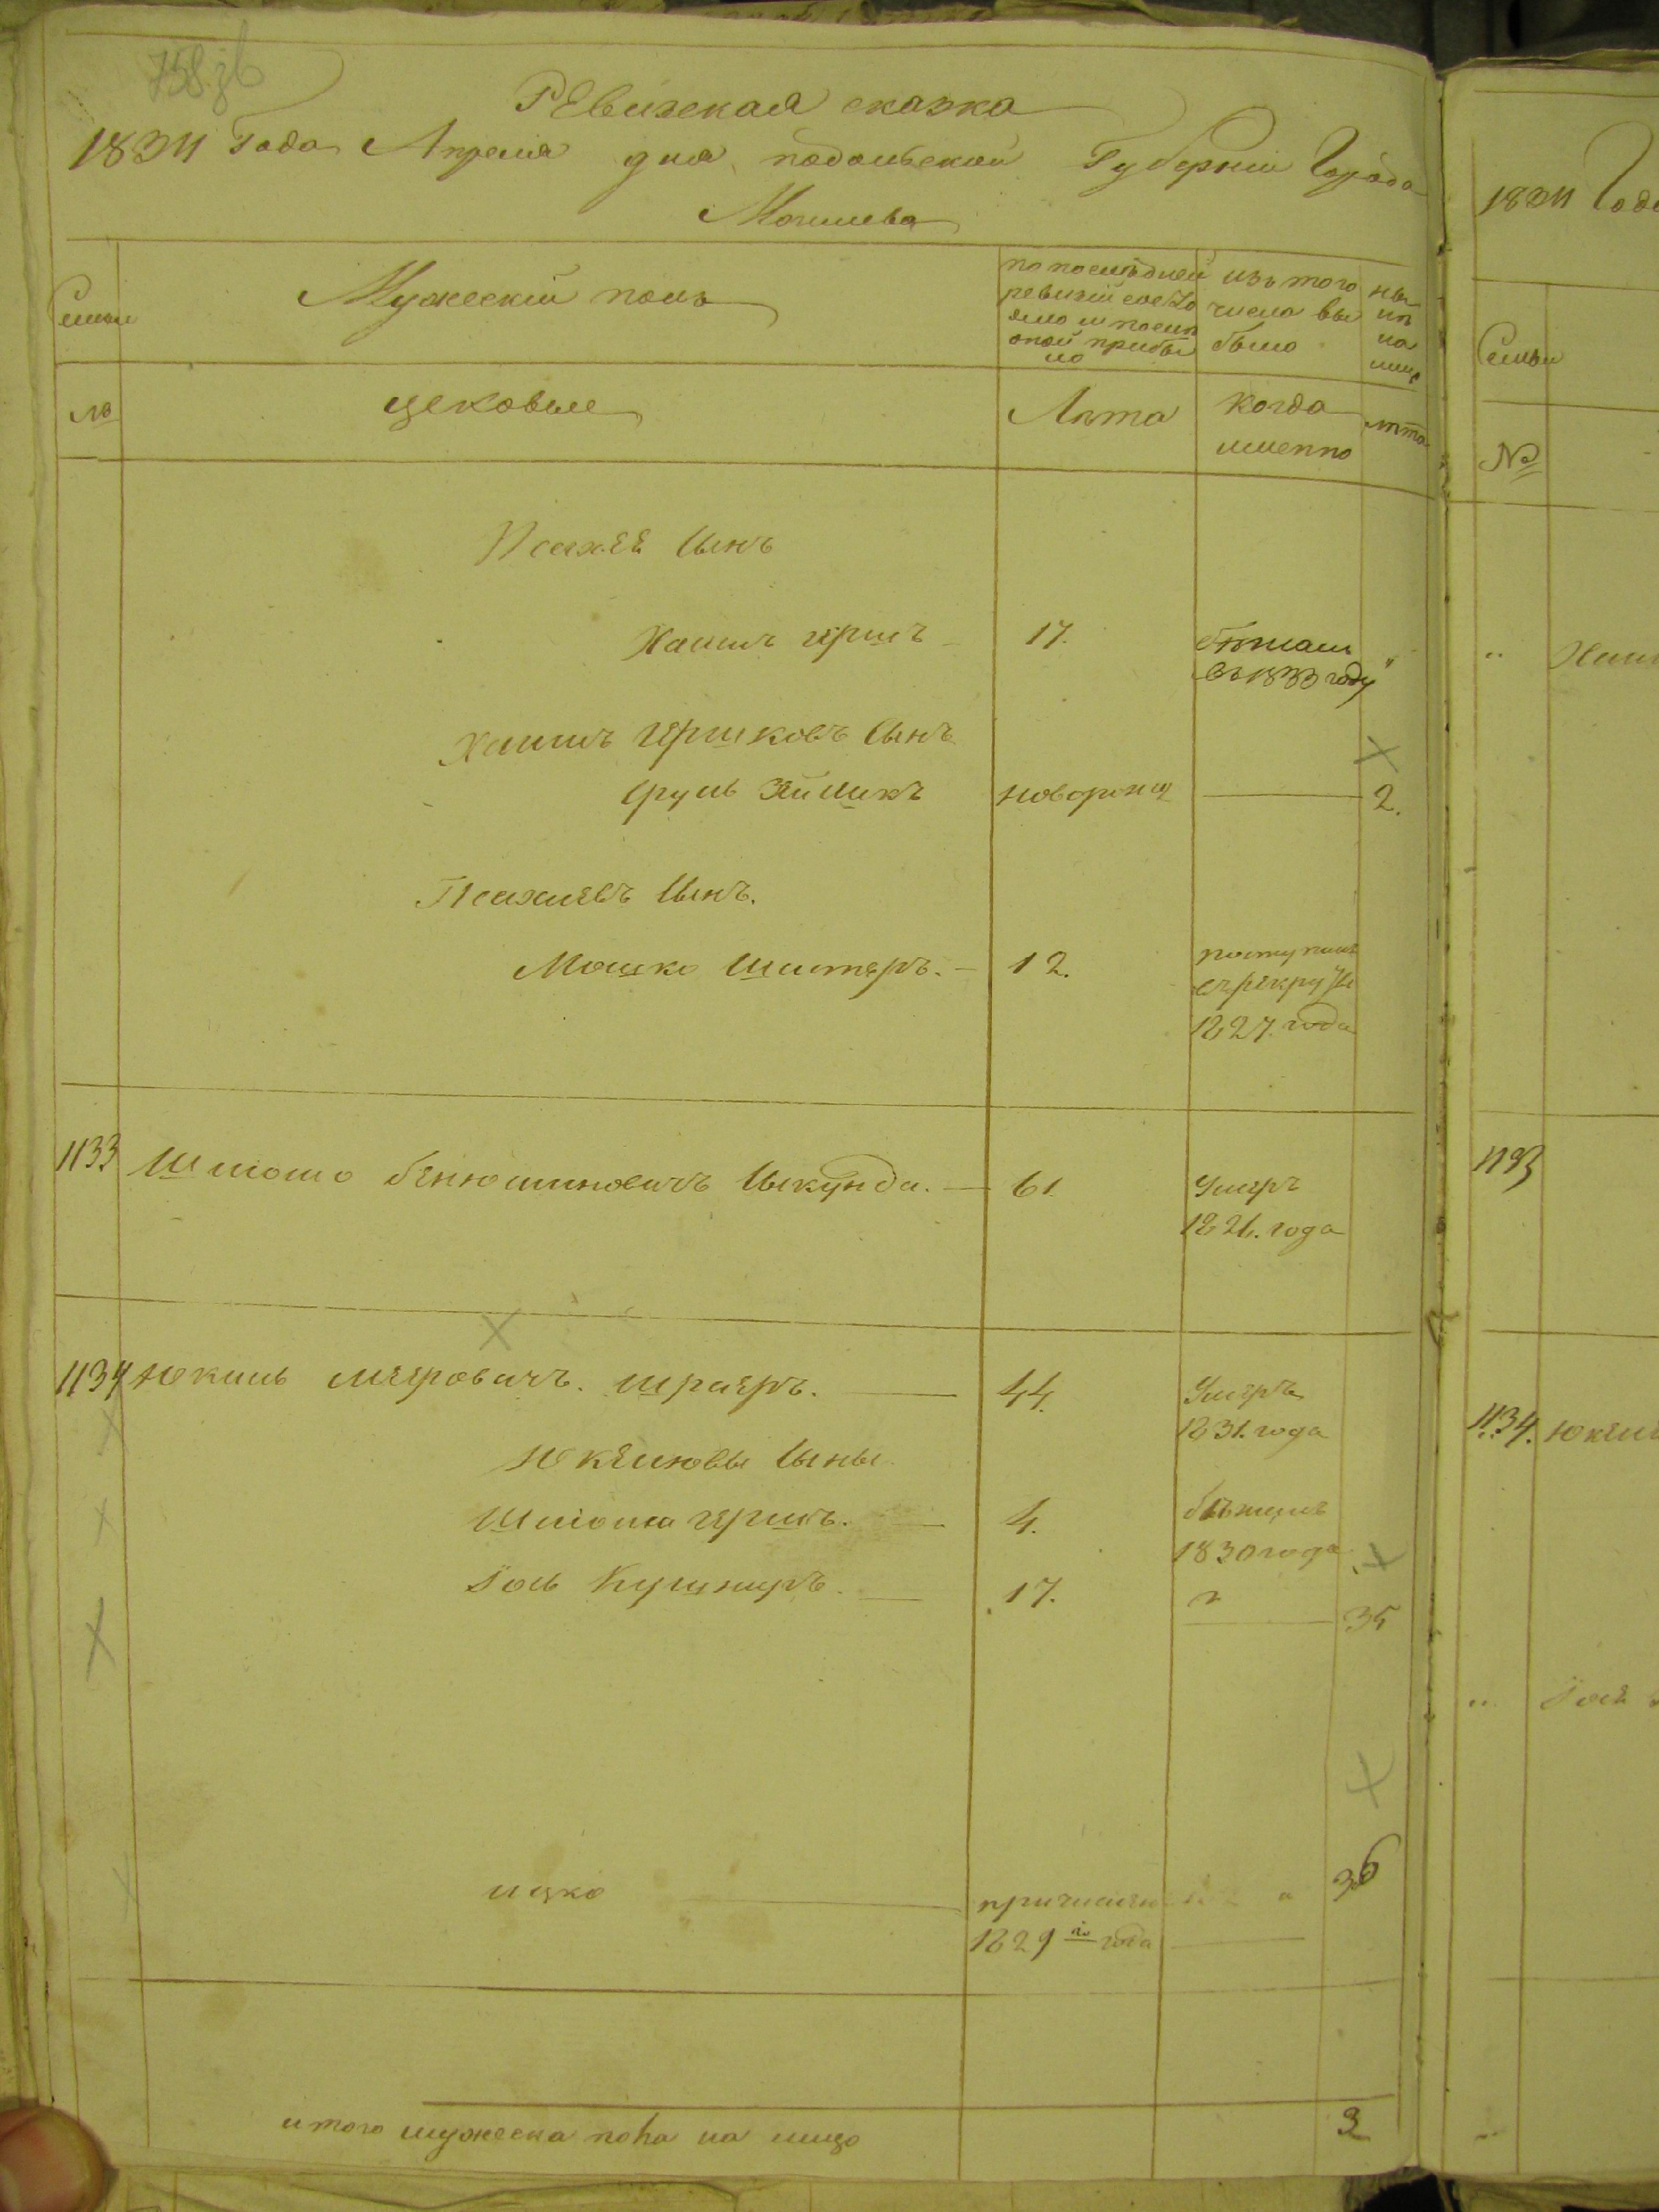 Ревизская сказка
1834 Года Апреля дня подольской Губернии Города
Могилева
Семьи
Мужеский полъ
по последней ревизии состояло и после оной прибыло
изъ того числа выбыло
ныне на лицо
№
цеховые
Лѣта
когда именно
лѣта
Псахея Сынъ
Хаимъ гершъ 17. бѣжалъ
въ 1833 году
Хаимъ гершковъ Сынъ
Сруль Зейликъ новорожд 2.
Псахиевъ Сынъ.
Мошко Шистеръ. 12. поступилъ
въ рекруты
1827. года
1133 Шліомо бенюминовичъ Цыкунда. 61. Умеръ
1821. года
1134 Юкиль мееровичъ. шраеръ. 44. Умеръ
1831. года
Юкелювы Сыны.
Шліома гершъ. 4. бѣжалъ
1830 года
Іось Кушниръ. 17. 35
ицко 36
1829 го года
итого мужеска пола на лицо 3
1834 Года
Семьи
№
1133
1134. Юкел